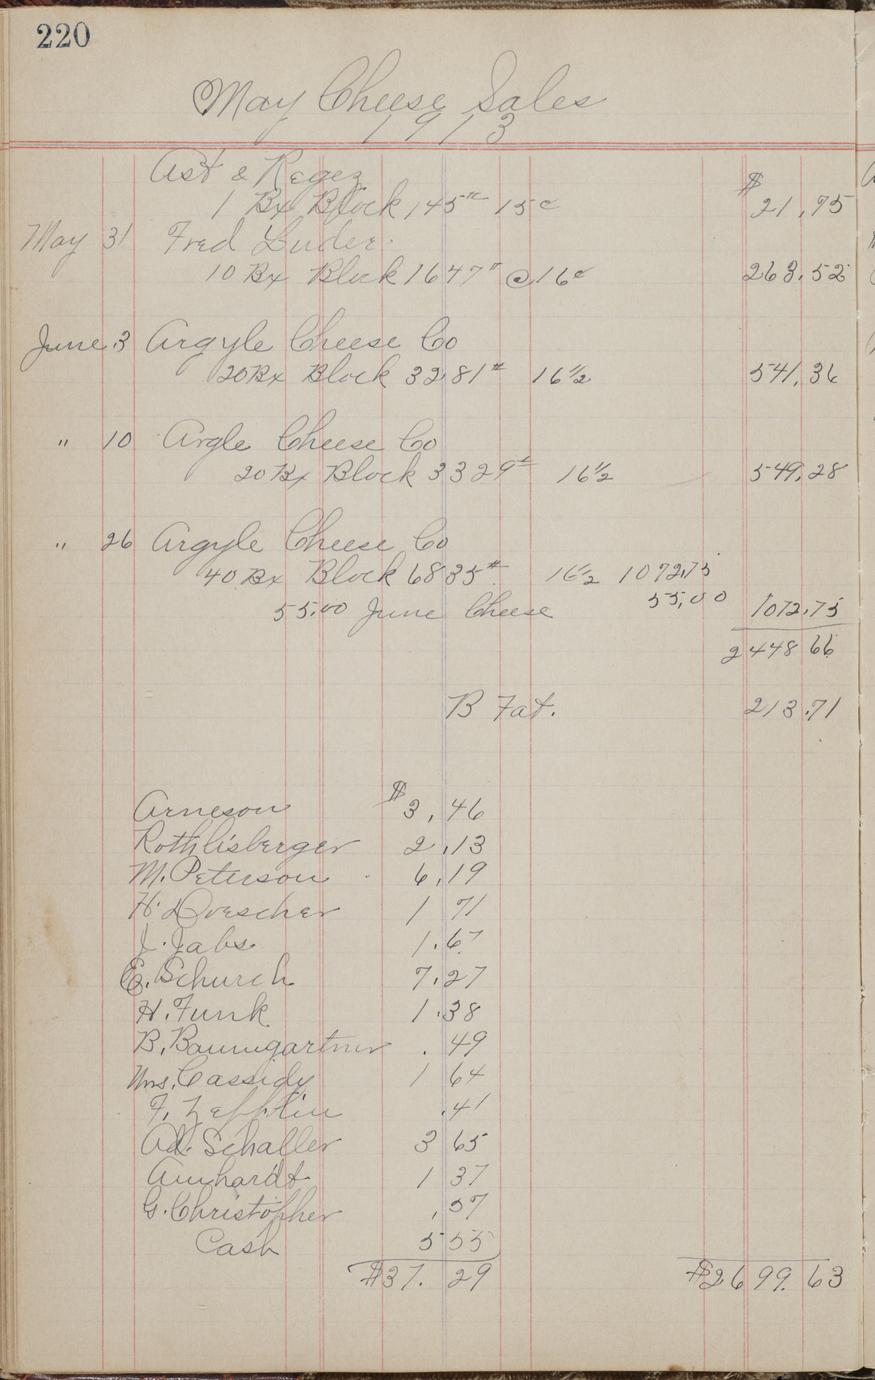 220
May Cheese Sales
1913
Ast & Regez $
1 Bx Block 145# 15c 21,75
May 31 Fred Luder.
10 Bx Block 1647# @ 16c 263.52
June 3 Argyle Cheese Co
20 Bx Block 3281# 16 1/2 541,36
" 10 Argle Cheese Co
20 Bx Block 3329# 16 1/2 549,28
" 26 Argyle Cheese Co
40 Bx Block 6835# 16 1/2 1072,75
55,00 June Cheese 55,00 1072,75
2448 66
B Fat. 213.71
Arneson $3,46
Rothlisberger 2,13
M. Peterson 6,19
H. Doescher 1 71
J. Jabs 1.67
E. Schurch 7.27
H. Funk 1.38
B. Baumgartner . 49
Mrs. Cassidy 1 64
F. Zepplin .41
Ad. Schaller 3 65
Amhardt 1 37
G. Christopher ,57
Cash 5 55
$37. 29 $2699.63